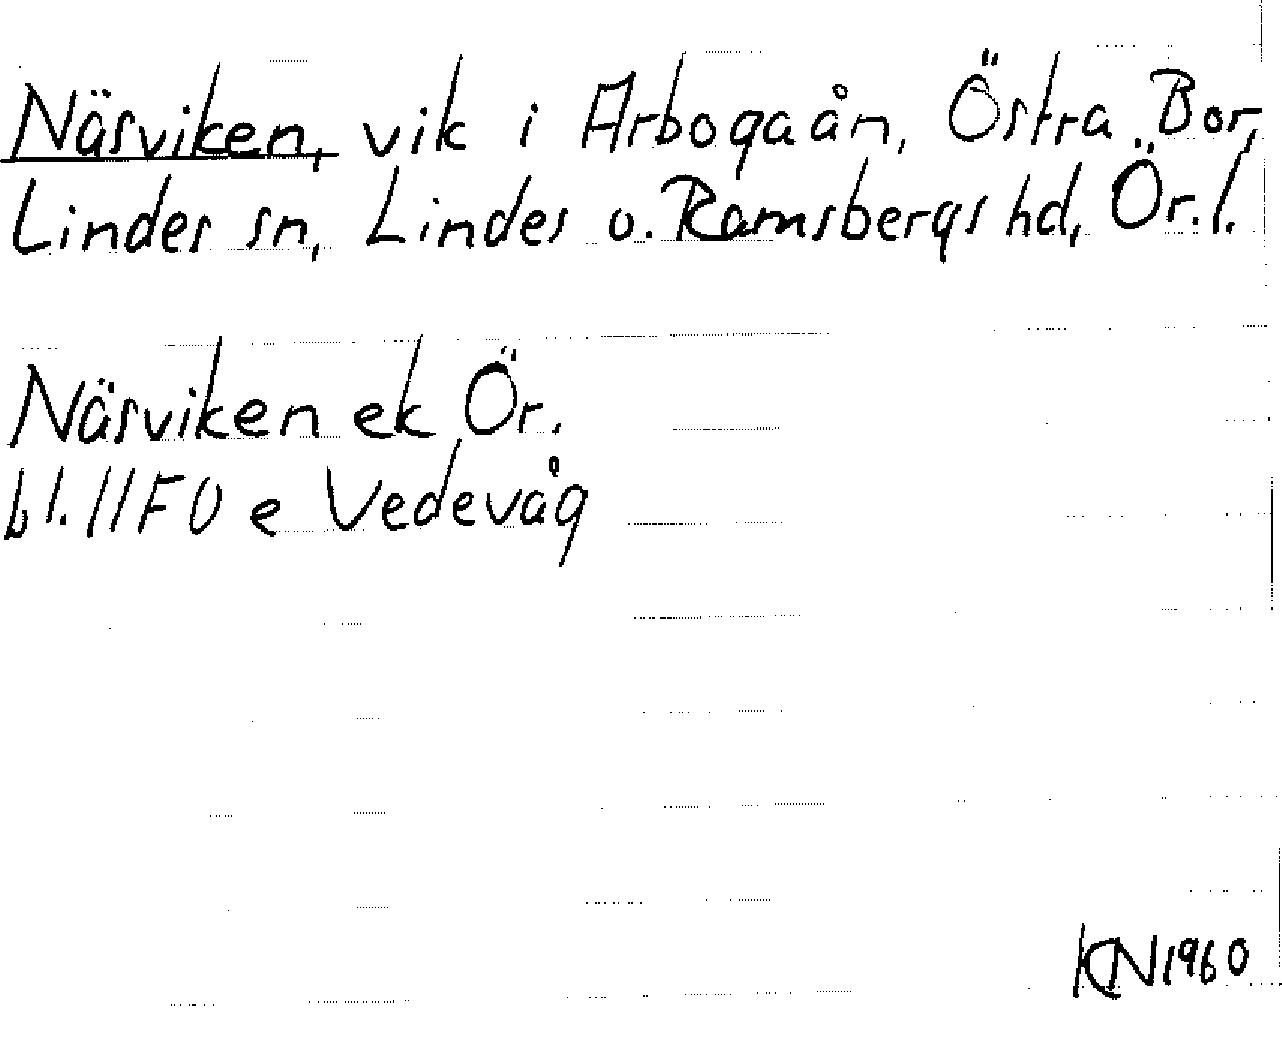 Näsviken, vik i Arbogaån, Östra Bor,
Lindes sn, Lindes o. Ramsbergs hd, Ör. l.
Näsviken ek Ör.
bl. 11FO e Vedevåg
KN 1960